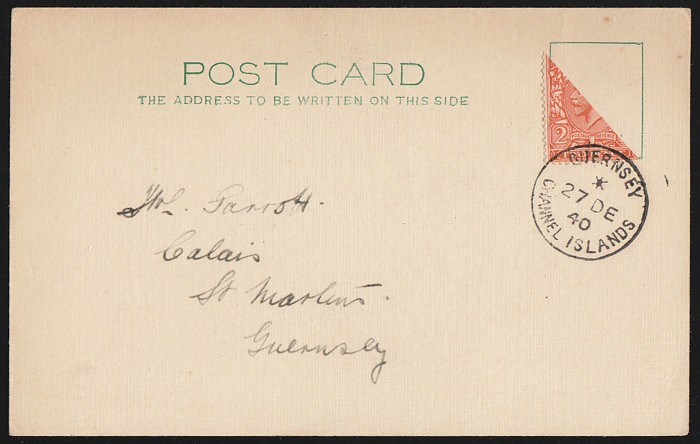 POST CARD
THE ADDRESS TO BE WRITTEN ON THIS SIDE
2
POSTAGE REVENUE
GUERNSEY
27 DE
40
CHANNEL ISLANDS
Parrott.
Calais
St Martins.
Guernsey